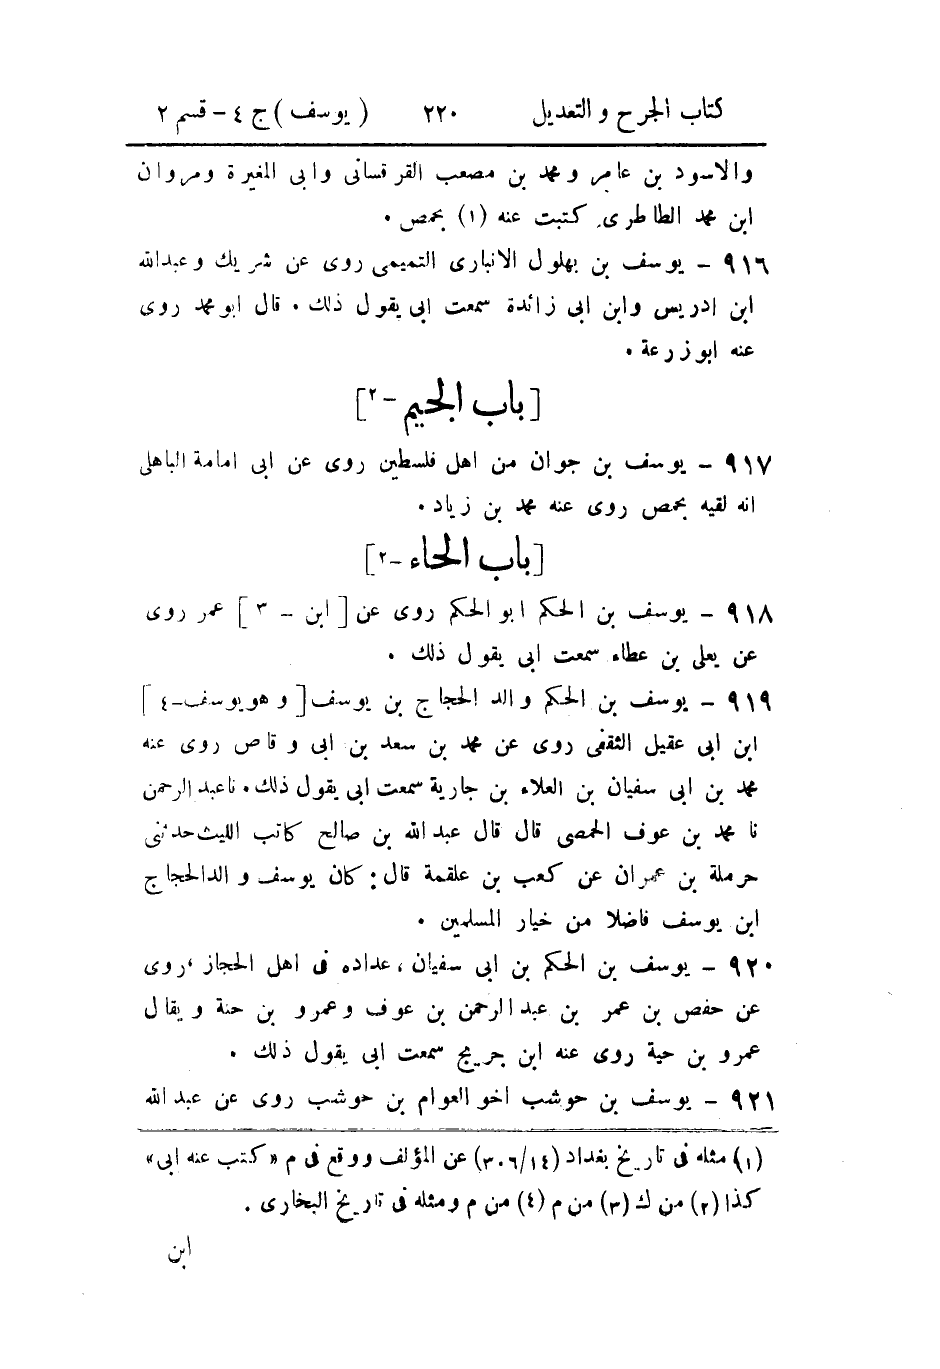 كتاب الجرح والتعديل ٢٢٠ (يوسف) ج ٤ - قسم ٢
والاسود بن عامر ومحمد بن مصعب القرقسانى وابى المغيرة ومروان
ابن محمد الطاطرى كتبت عنه (١) بحمص .
٩١٦ - يوسف بن بهلول الانبارى التميمى روى عن شريك وعبدالله
ابن ادريس وابن ابى زائدة سمعت ابى يقول ذلك . قال ابو محمد روى
عنه ابو زرعة .
[باب الجيم - ٢]
٩١٧ - يوسف بن جوان من اهل فلسطين روى عن ابى امامة الباهلى
انه لقيه بحمص روى عنه محمد بن زياد .
[باب الحاء - ٢]
٩١٨ - يوسف بن الحكم ابو الحكم روى عن [ابن - ٣] عمر روى
عن يعلى بن عطاء سمعت ابى يقول ذلك .
٩١٩ - يوسف بن الحكم والد الحجاج بن يوسف [وهو يوسف - ٤]
ابن ابى عقيل الثقفى روى عن محمد بن سعد بن ابى وقاص روى عنه
محمد بن ابى سفيان بن العلاء بن جارية سمعت ابى يقول ذلك . نا عبد الرحمن
نا محمد بن عوف الحمصى قال قال عبد الله بن صالح كاتب الليث حدثنى
حرملة بن عمران عن كعب بن علقمة قال : كان يوسف والد الحجاج
ابن يوسف فاضلا من خيار المسلمين .
٩٢٠ - يوسف بن الحكم بن ابى سفيان ، عداده فى اهل الحجاز ، روى
عن حفص بن عمر بن عبد الرحمن بن عوف وعمرو بن حنة ويقال
عمرو بن حية روى عنه ابن جريج سمعت ابى يقول ذلك .
٩٢١ - يوسف بن حوشب اخو العوام بن حوشب روى عن عبد الله
(١) مثله فى تاريخ بغداد (٣٠٦/١٤) عن المؤلف ووقع فى م «كتب عنه ابى»
كذا (٢) من ك (٣) من م (٤) من م ومثله فى تاريخ البخارى .
ابن